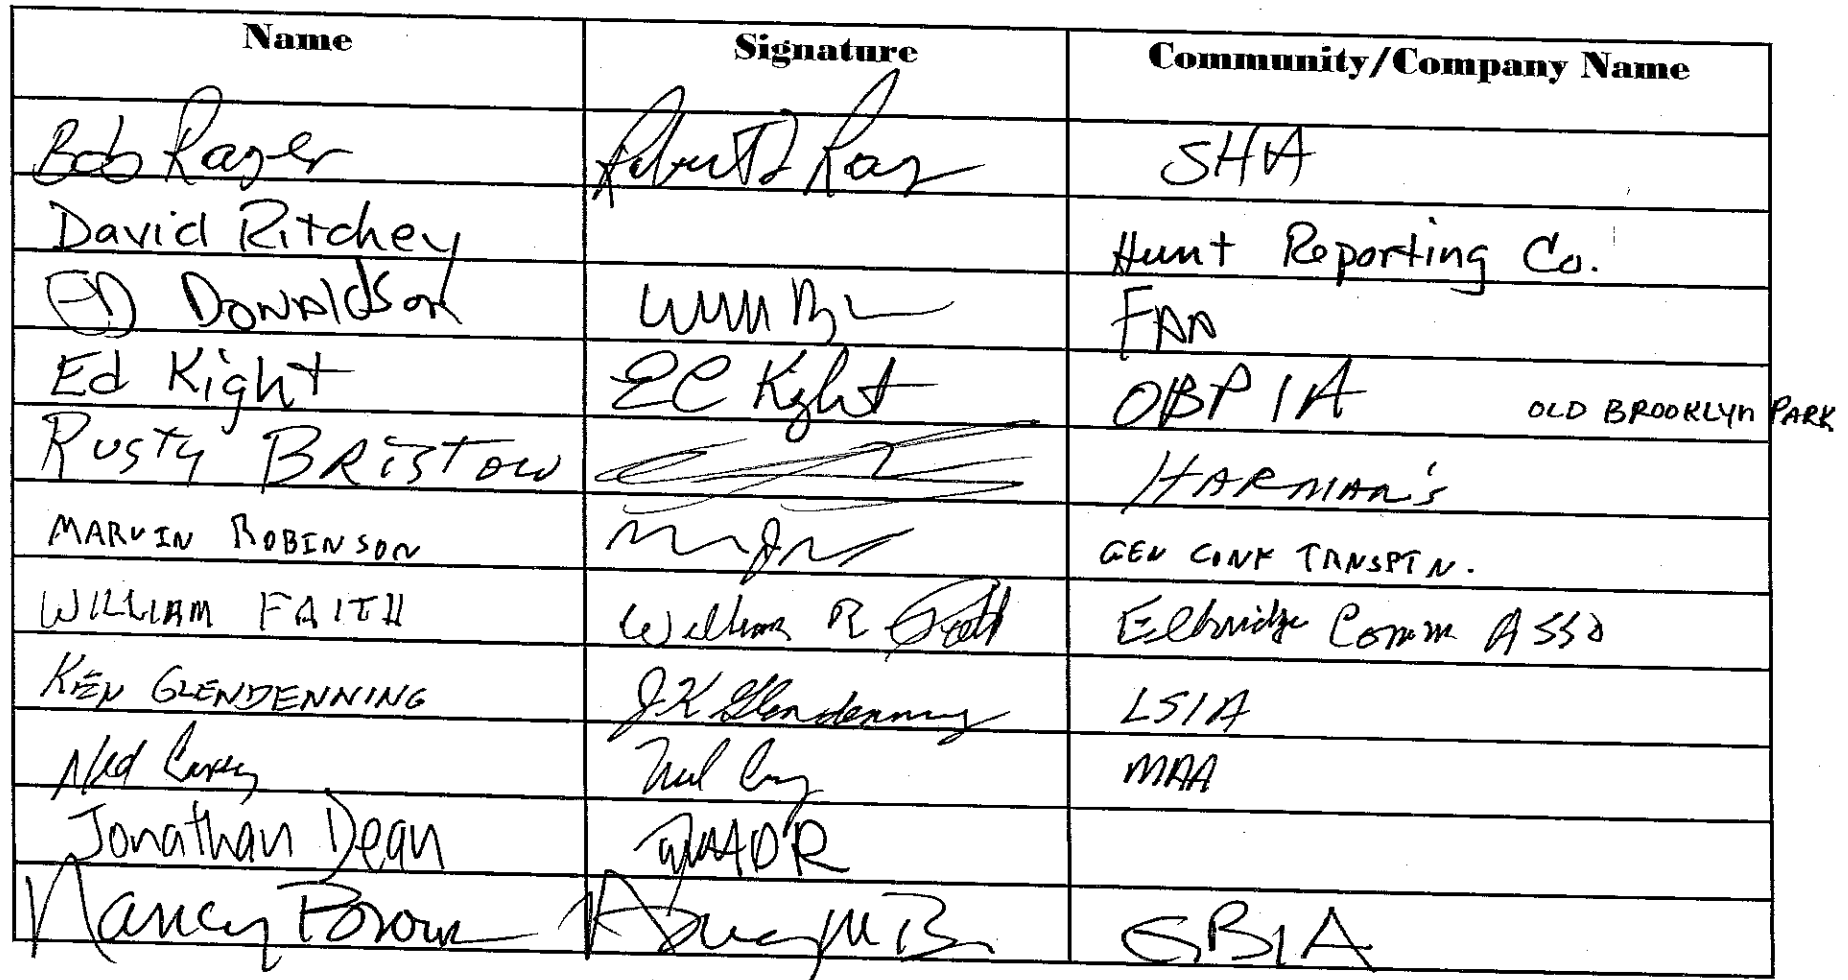 Name Signature Community/Company Name
Bob Rager Robert L Rag SHA
David Ritchey Hunt Reporting Co.
ED DONALDSON FAA
Ed Kight EC Kight OBPIA OLD BROOKLYN PARK
Rusty BRISTOW HARMAN'S
MARVIN ROBINSON GEN CONF TRNSPTN.
WILLIAM FAITH William R Faith Elkridge Comm ASSO
KEN GLENDENNING JK Glendenning LSIA
Ned Carey MAA
Jonathan Dean
Nancy Brown Nancy M B GBIA